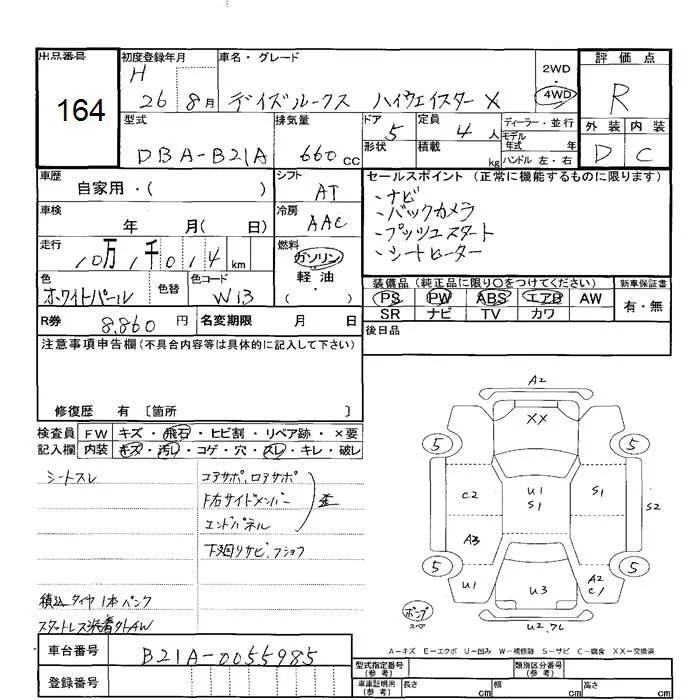 出品番号
164
初度登録年月
H
26 8月
車名・グレード
デイズルークス ハイウェイスターX
2WD
4WD
評価点
R
外装 内装
D C
型式
DBA-B21A
排気量
660cc
ドア
5
形状
定員
4人
積載
kg
ディーラー・並行
モデル年式 年
ハンドル 左・右
車歴
自家用・( )
シフト
AT
車検
年 月( 日)
冷房
AAC
走行
10万1千014km
燃料
ガソリン
軽油
・( )
色
ホワイトパール
色替
色コード
W13
R券
8,860円
名変期限 月 日
セールスポイント (正常に機能するものに限ります)
、ナビ
、バックカメラ
、プッシュスタート
、シートヒーター
装備品 (純正品に限り○をつけてください)
新車保証書
PS PW ABS エアB AW
SR ナビ TV カワ
有・無
後日品
注意事項申告欄(不具合内容等は具体的に記入して下さい)
修復歴 有 〔箇所 〕
検査員記入欄
FW キズ・飛石・ヒビ割・リペア跡・×要
内装 キズ・汚レ・コゲ・穴・スレ・キレ・破レ
シートスレ
コアサポ、ロアサポ
F右サイドメンバー
エンドパネル
歪
下廻りサビ、フショク
積込タイヤ1本パンク
スタートレス装着外AW
A2
XX
5
5
C2
U1
S1
S1
S2
A3
5
5
U1
U3
A2
C1
U2.アL
A-キズ E-エクボ U-凹み W-補修跡 S-サビ C-腐食 XX-交換済
車台番号
B21A-0055985
登録番号
型式指定番号
(参考)
類別区分番号
(参考)
車庫証明用
(参考)
長さ cm 幅 cm 高さ cm